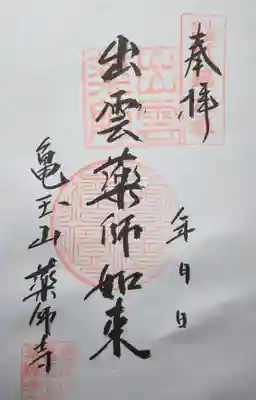 奉拝
年月日
出雲薬師如来
亀玉山薬師寺